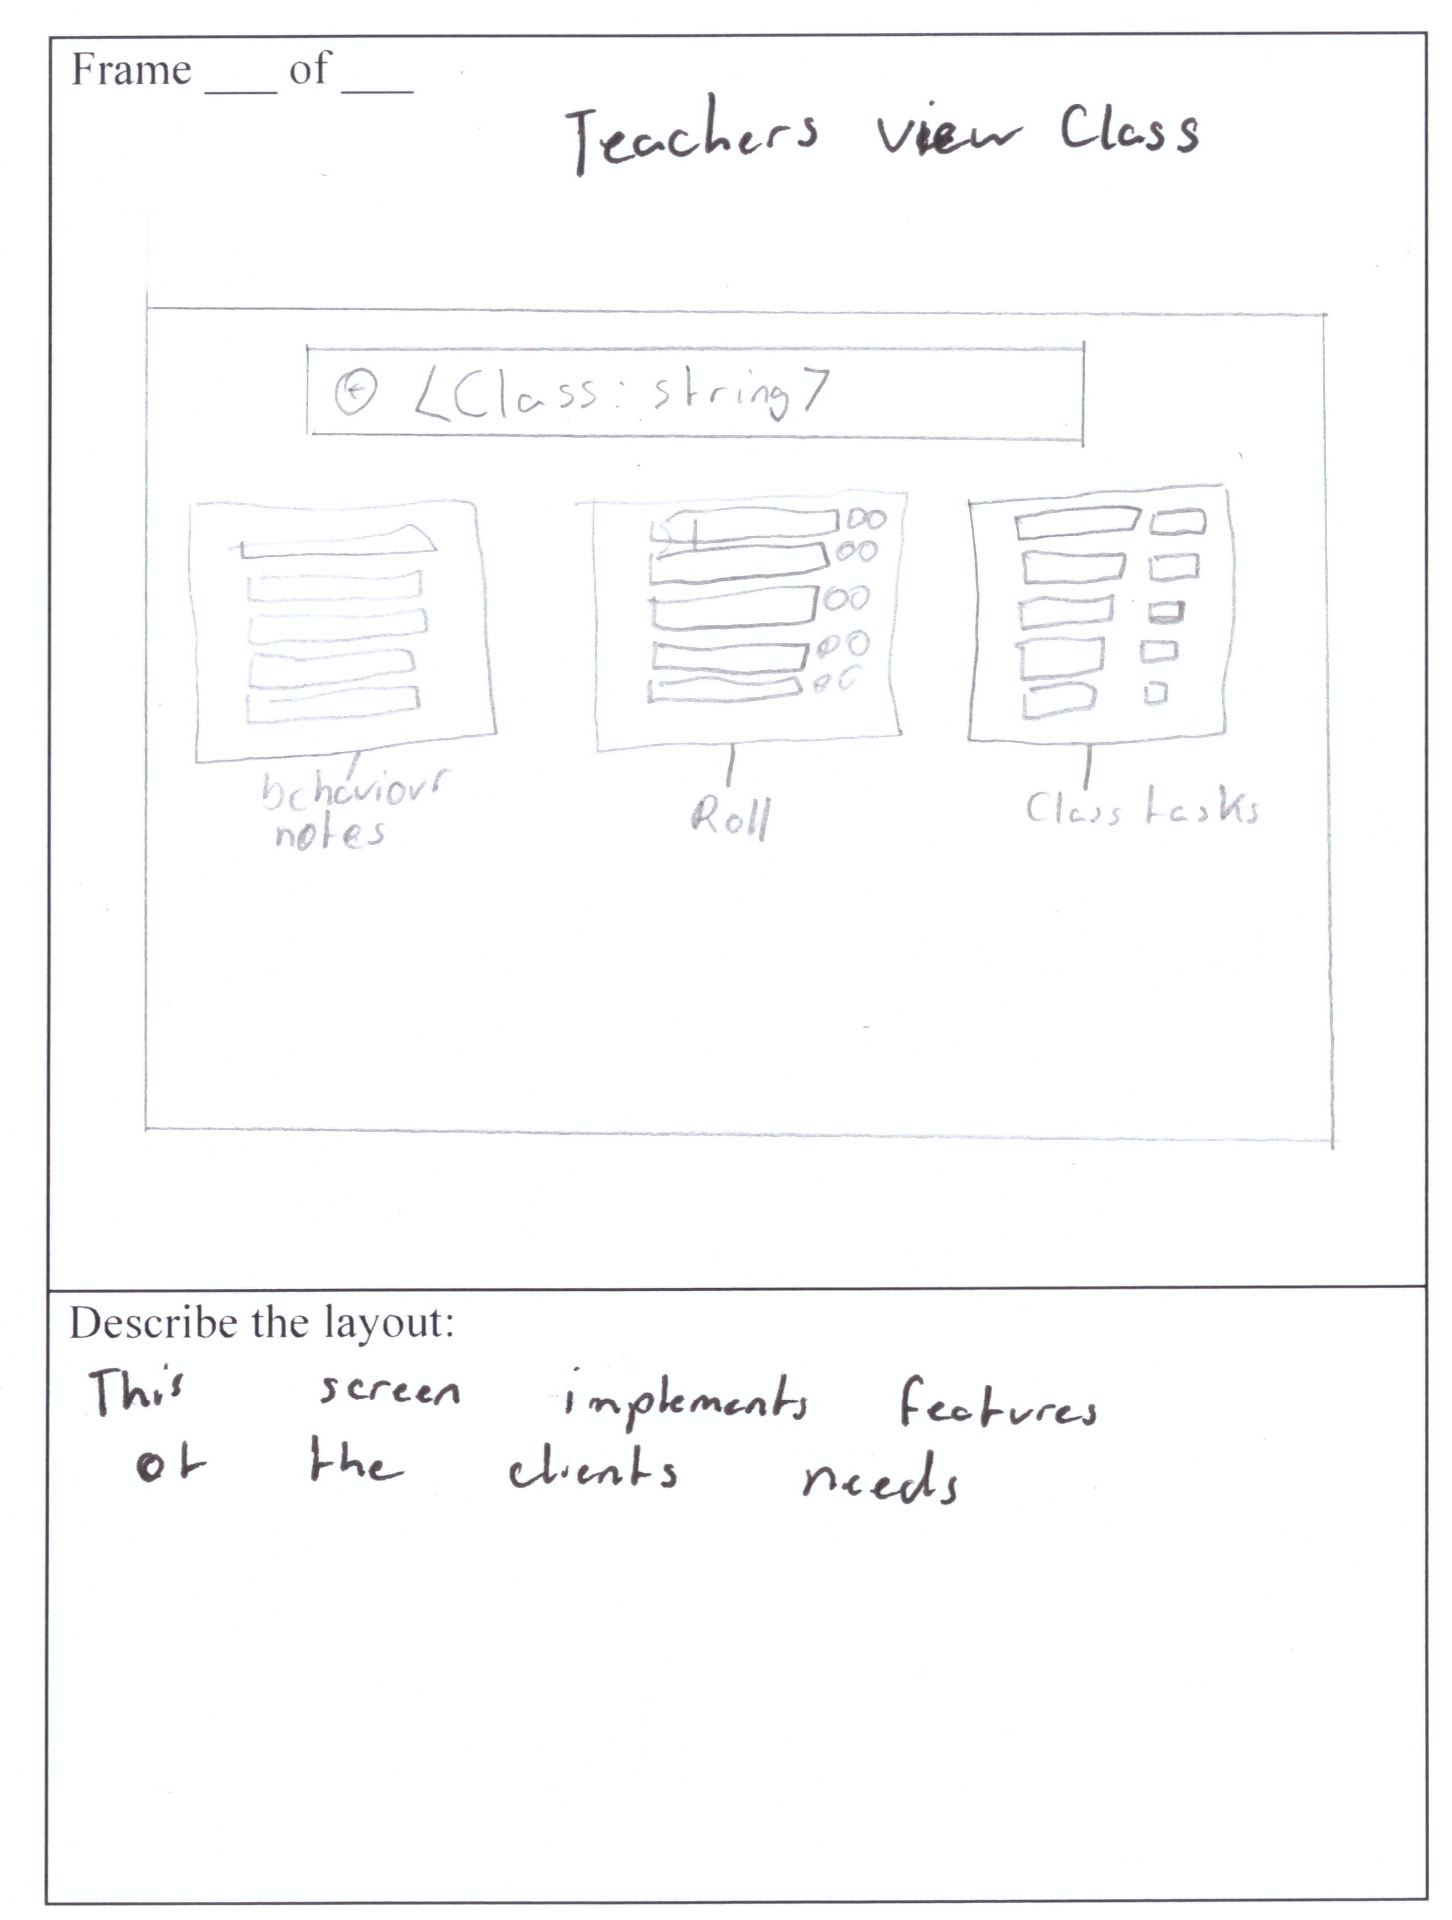 Frame ___ of ___
Teachers view Class
<Class: string>
behaviour
notes
Roll
Class tasks
Describe the layout:
This screen implements features
of the clients needs